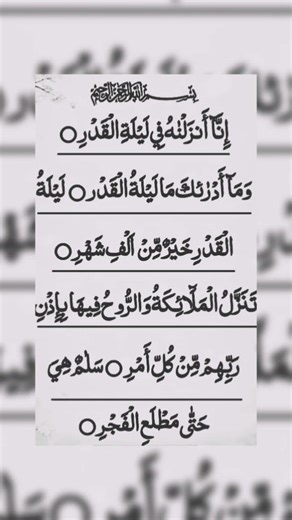 بِسْمِ اللهِ الرَّحْمٰنِ الرَّحِيْمِ
إِنَّآ أَنزَلْنٰهُ فِي لَيْلَةِ الْقَدْرِ ○
وَمَآ أَدْرٰىٰكَ مَا لَيْلَةُ الْقَدْرِ ○ لَيْلَةُ
الْقَدْرِ خَيْرٌ مِّنْ أَلْفِ شَهْرٍ ○
تَنَزَّلُ الْمَلٰٓئِكَةُ وَالرُّوحُ فِيهَا بِإِذْنِ
رَبِّهِمْ مِّنْ كُلِّ أَمْرٍ ○ سَلٰمٌ هِيَ
حَتّٰى مَطْلَعِ الْفَجْرِ ○